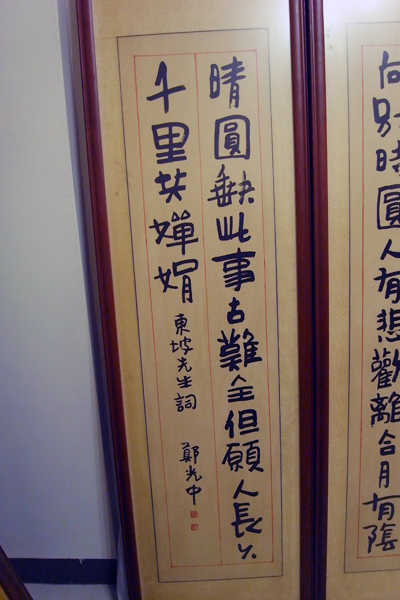 向別時圓人有悲歡離合月有陰
晴圓缺此事古難全但願人長久
千里共嬋娟
東坡先生詞
鄭光中